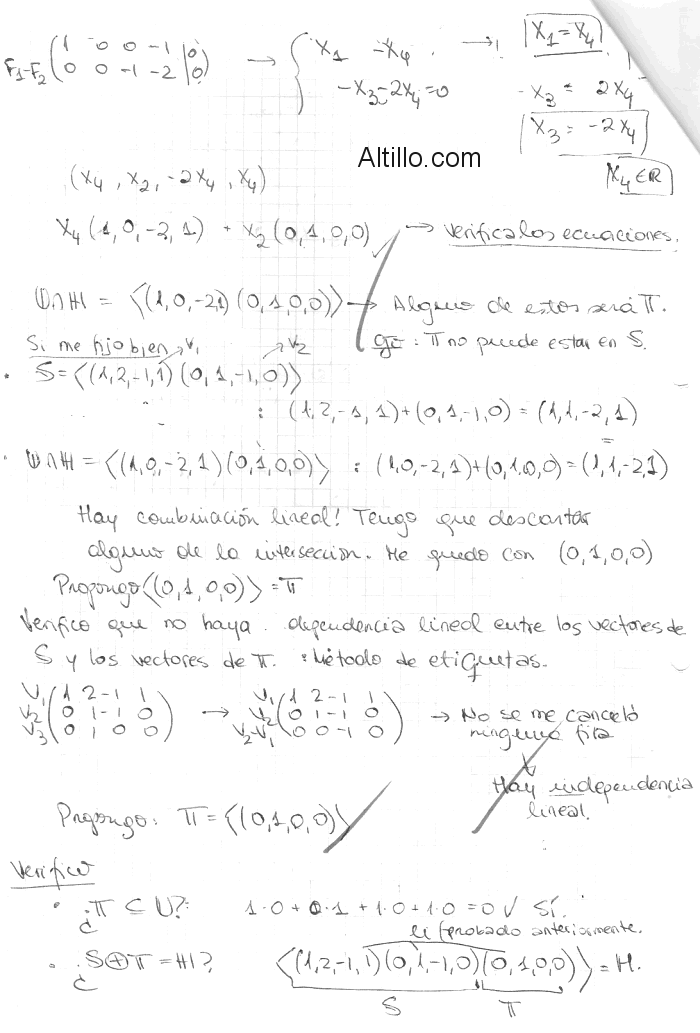 F₁-F₂ (1 0 0 -1 | 0
0 0 -1 -2 | 0) → { X₁ -X₄ → X₁ = X₄
-X₃-2X₄=0 -X₃ = 2X₄
X₃ = -2X₄
Altillo.com
X₄ ∈ ℝ
(X₄, X₂, -2X₄, X₄)
X₄(1,0,-2,1) + X₂(0,1,0,0) → Verifica los ecuaciones.
U∩H = ⟨(1,0,-2,1)(0,1,0,0)⟩ → Alguno de estos será T.
: T no puede estar en S.
Si me fijo bien → V₁ → V₂
• S=⟨(1,2,-1,1)(0,1,-1,0)⟩
: (1,2,-1,1)+(0,1,-1,0) = (1,1,-2,1)
=
• U∩H = ⟨(1,0,-2,1)(0,1,0,0)⟩ : (1,0,-2,1)+(0,1,0,0)=(1,1,-2,1)
Hay combinación lineal! Tengo que descartar
alguno de la intersección. Me quedo con (0,1,0,0)
Propongo⟨(0,1,0,0)⟩=T
Verifico que no haya dependencia lineal entre los vectores de
S y los vectores de T. : Método de etiquetas.
V₁ (1 2 -1 1 → V₁ (1 2 -1 1 → No se me canceló
V₂ 0 1 -1 0 V₂ 0 1 -1 0 ninguna fila
V₃ 0 1 0 0) V₂-V₁ 0 0 -1 0)
↓
Hay independencia
lineal.
Propongo: T=⟨(0,1,0,0)⟩
Verifico
• ¿T ⊆ U?: 1·0 + 0·1 + 1·0 + 1·0 = 0 ✓ Sí.
probado anteriormente.
• ¿S⊕T=H? ⟨(1,2,-1,1)(0,1,-1,0)(0,1,0,0)⟩=H.
S T